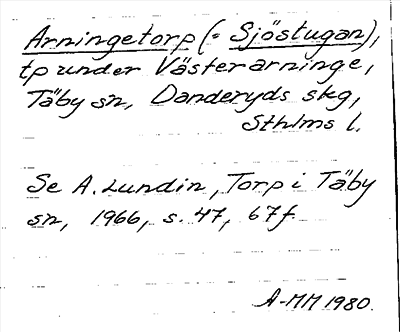 Arningetorp (= Sjöstugan),
tp under Västerarninge,
Täby sn, Danderyds skg,
Sthlms l.
Se A. Lundin, Torp i Täby
sn, 1966, s. 47, 67f
A-MM 1980.